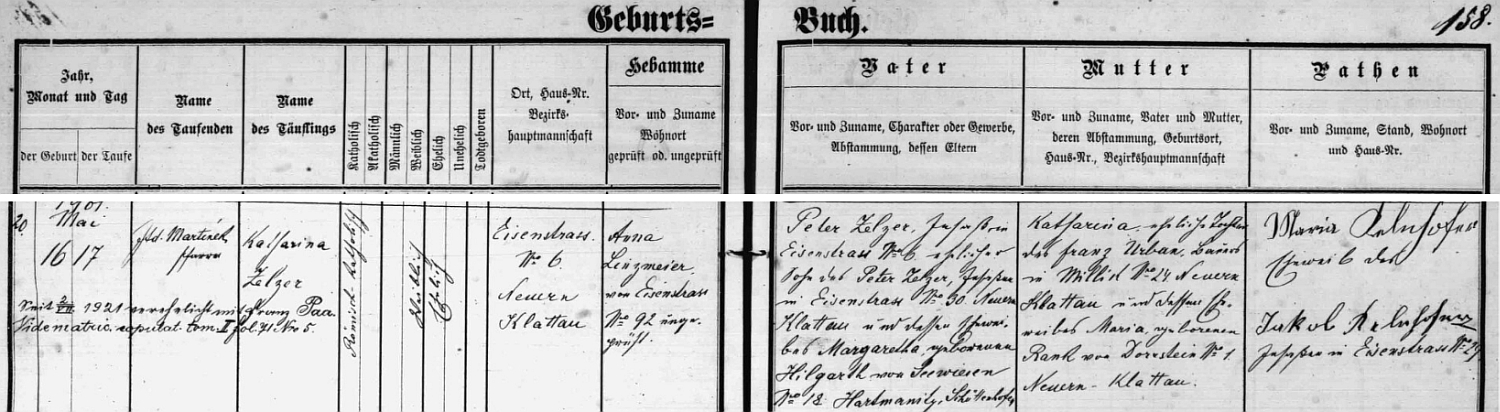 Geburts=
Buch.
158.
Jahr,
Monat und Tag
der Geburt
der Taufe
Name
des Taufenden
Name
des Täuflings
Katholisch
Akatholisch
Männlich
Weiblich
Ehelich
Unehelich
Todtgeboren
Ort, Haus-Nr.
Bezirks-
hauptmannschaft
Hebamme
Vor- und Zuname
Wohnort
geprüft od. ungeprüft
Vater
Vor- und Zuname, Charakter oder Gewerbe,
Abstammung, dessen Eltern
Mutter
Vor- und Zuname, Vater und Mutter,
deren Abstammung, Geburtsort,
Haus-Nr., Bezirkshauptmannschaft
Pathen
Vor- und Zuname, Stand, Wohnort
und Haus-Nr.
1901.
20. Mai
16 17
Ad. Martinek
Pfarrer
Katharina
Zelzer
Seit 1921 verehelicht mit Franz Paa.
Vide matric. copulat. tom. II fol. 71. No 5.
Römisch-katholisch
Weiblich
Ehelich
Eisenstrass.
No 6.
Neuern
Klattau
Anna
Linzmeier
von Eisenstrass
No 92 unge-
prüft.
Peter Zelzer, Insaß in
Eisenstrass No 6. ehelicher
Sohn des Peter Zelzer, Insaßen
in Eisenstrass No 30. Neuern
Klattau und dessen Ehewei-
bes Margaretha, geborenen
Hilgarth von Seewiesen
No 18 Hartmanitz, Schüttenhofen
Katharina, eheliche Tochter
des Franz Urban, Bauers
in Millik No 24 Neuern
Klattau und dessen Ehe-
weibes Maria, geborenen
Rank von Dornstein No 1
Neuern - Klattau.
Maria
Eheweib des
Jakob
Insaßen in Eisenstrass No 29